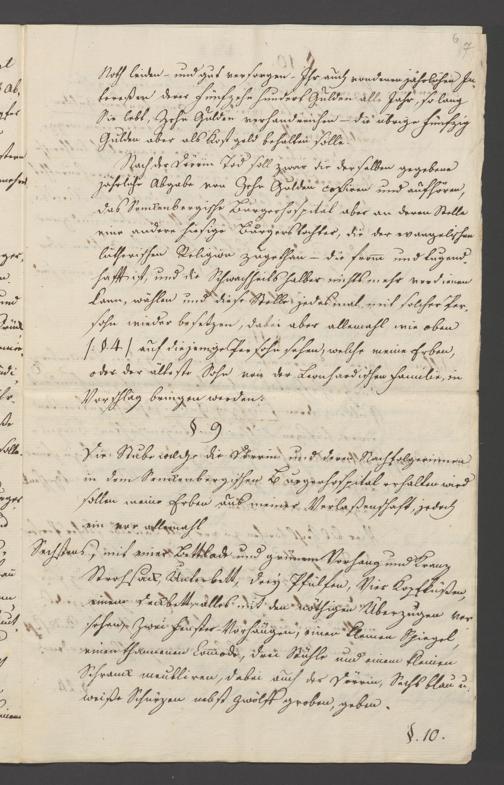 7
Noth leiden – und gut versorgen – Ihr auch von denen jährlichen In-
teressen derer Fünfzehn hundert Gulden alle Jahr, so lang
Sie lebt, Zehn Gulden verhandreichen – die übrige Fünfzig
Gulden aber als Kostgeld behalten solle.
Nach der Dörrin Tod soll zwar die derselben gegebene
jährliche Abgabe von Zehn Gulden cessiren und aufhören,
das Senckenbergische Bürgerhospital aber an deren Stelle
eine andere hiesige Bürgerstochter, die der evangelischen
lutherischen Religion zugethan – die fromm und tugend-
hafft ist, und die Schwachheits halber nichts mehr verdienen
kann, wählen und diese Stelle jedesmal mit solcher Per-
sohn wieder besetzen, dabei aber allemahl wie oben
/: § 4 :/ auf diejenige Persohn sehen, welche meine Erben,
oder der älteste Sohn von der Leonhardischen Familie, in
Vorschlag bringen werden.
§. 9
Die Stube welche die Dörrin und deren Nachfolgerinnen
in dem Senckenbergischen Bürgerhospital erhalten wird
sollen meine Erben aus meiner Verlaßenschaft, jedoch
ein vor allemahl
Sechstens, mit einer Bettlade und grünem Vorhang und Kranz
Strohsack, Unterbett, drey Pfülfen, Vier Kopfküßen,
einem Deckbett alles mit den nöthigen Überzügen ver-
sehen, zwei Fenster Vorhängen, einen kleinen Spiegel,
einen thannenen Comode, drei Stühle und einem kleinen
Schrank meubliren, dabei auch der Dörrin, Sechs blau u.
weiße Schürzen nebst zwölff groben, geben.
§. 10.